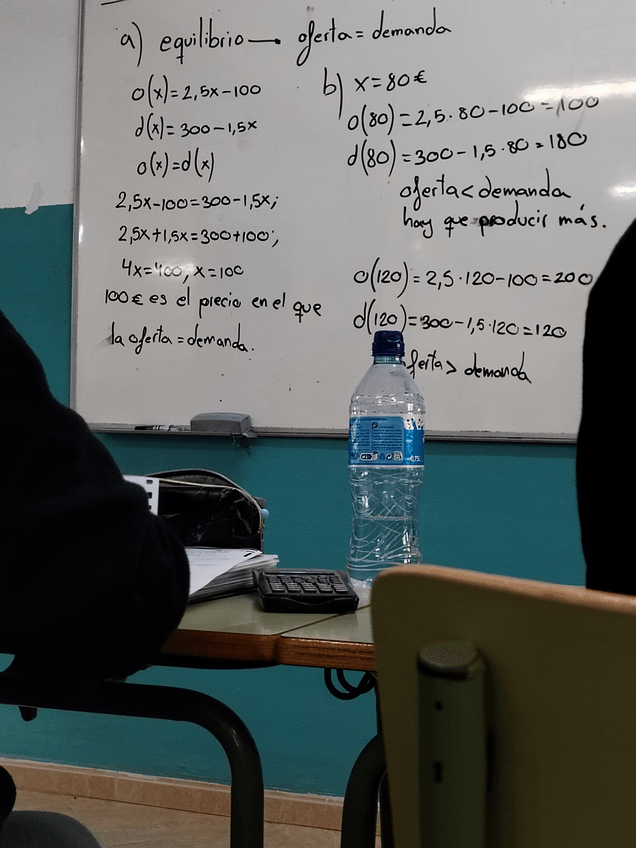 a) equilibrio → oferta = demanda
o(x) = 2,5x - 100
d(x) = 300 - 1,5x
o(x) = d(x)
2,5x - 100 = 300 - 1,5x;
2,5x + 1,5x = 300 + 100;
4x = 400; x = 100
100 € es el precio en el que
la oferta = demanda.
b) x = 80 €
o(80) = 2,5 · 80 - 100 = 100
d(80) = 300 - 1,5 · 80 = 180
oferta < demanda
hay que producir más.
o(120) = 2,5 · 120 - 100 = 200
d(120) = 300 - 1,5 · 120 = 120
ferta > demanda